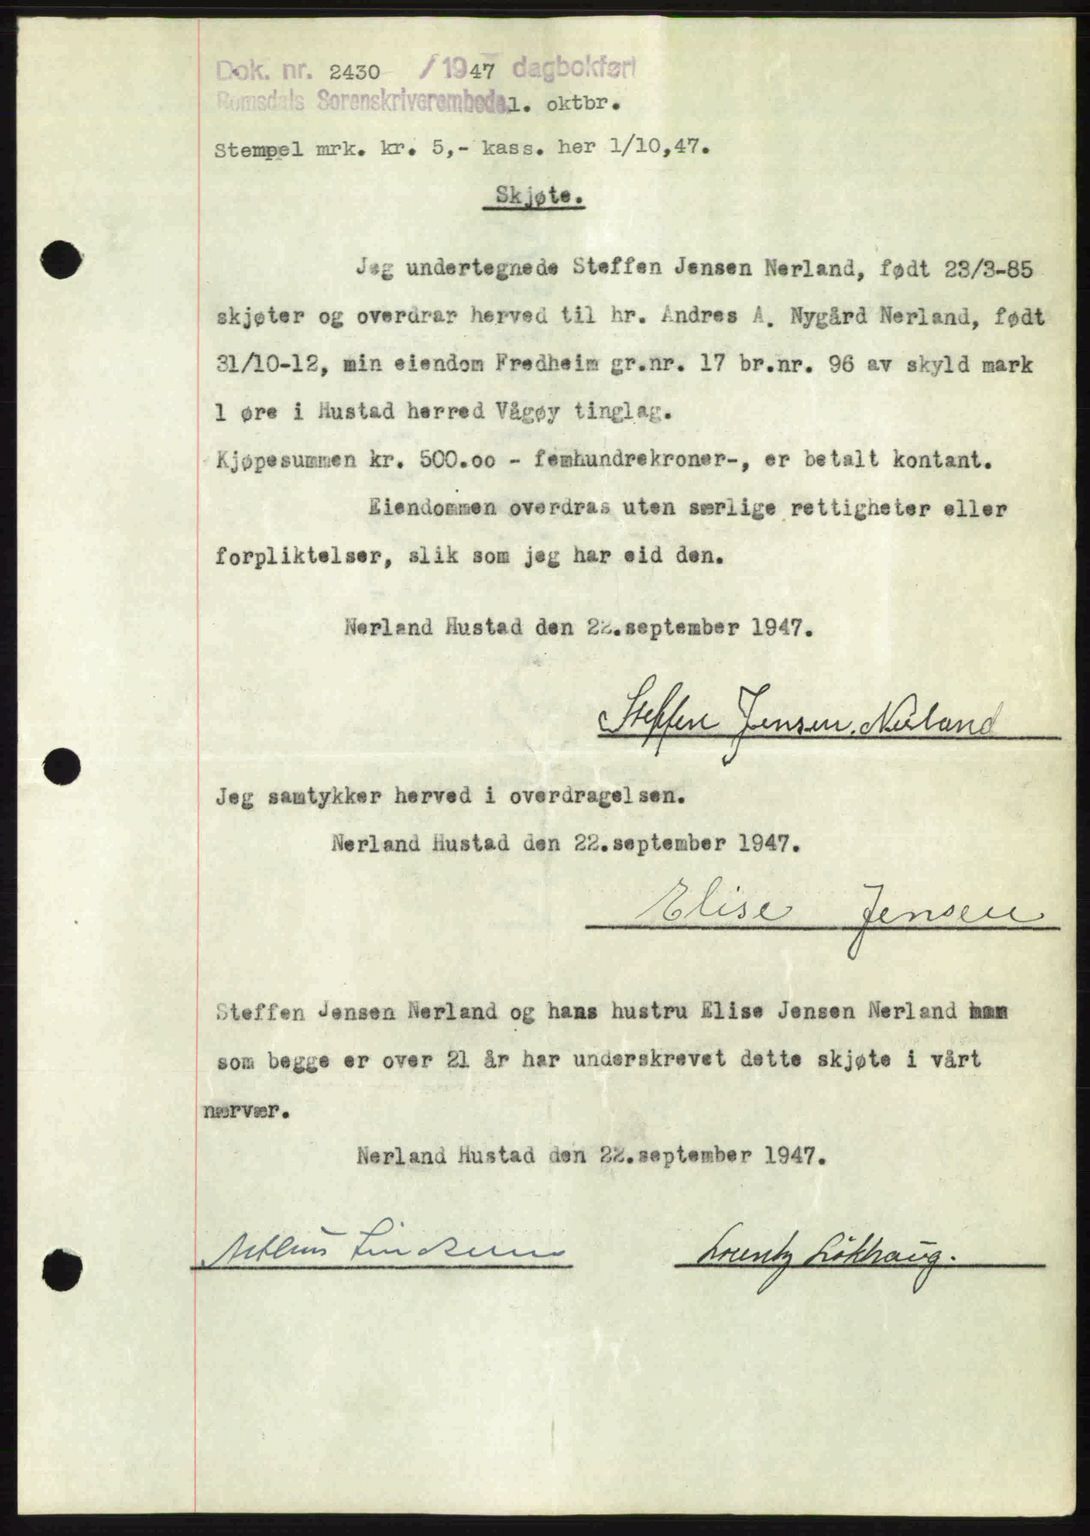 Dok. nr. 2430 /1947 dagbokført
Romsdals Sorenskriverembede 1. oktbr.
Stempel mrk. kr. 5,- kass. her 1/10,47.
Skjøte.
Jeg undertegnede Steffen Jensen Nerland, født 23/3-85
skjøter og overdrar herved til hr. Andres A. Nygård Nerland, født
31/10-12, min eiendom Fredheim gr.nr. 17 br.nr. 96 av skyld mark
1 øre i Hustad herred Vågøy tinglag.
Kjøpesummen kr. 500.oo - femhundrekroner-, er betalt kontant.
Eiendommen overdras uten særlige rettigheter eller
forpliktelser, slik som jeg har eid den.
Nerland Hustad den 22.september 1947.
Steffen Jensen Nerland
Jeg samtykker herved i overdragelsen.
Nerland Hustad den 22.september 1947.
Elise Jensen
Steffen Jensen Nerland og hans hustru Elise Jensen Nerland
som begge er over 21 år har underskrevet dette skjøte i vårt
nærvær.
Nerland Hustad den 22.september 1947.
Lorentz Løkhaug.